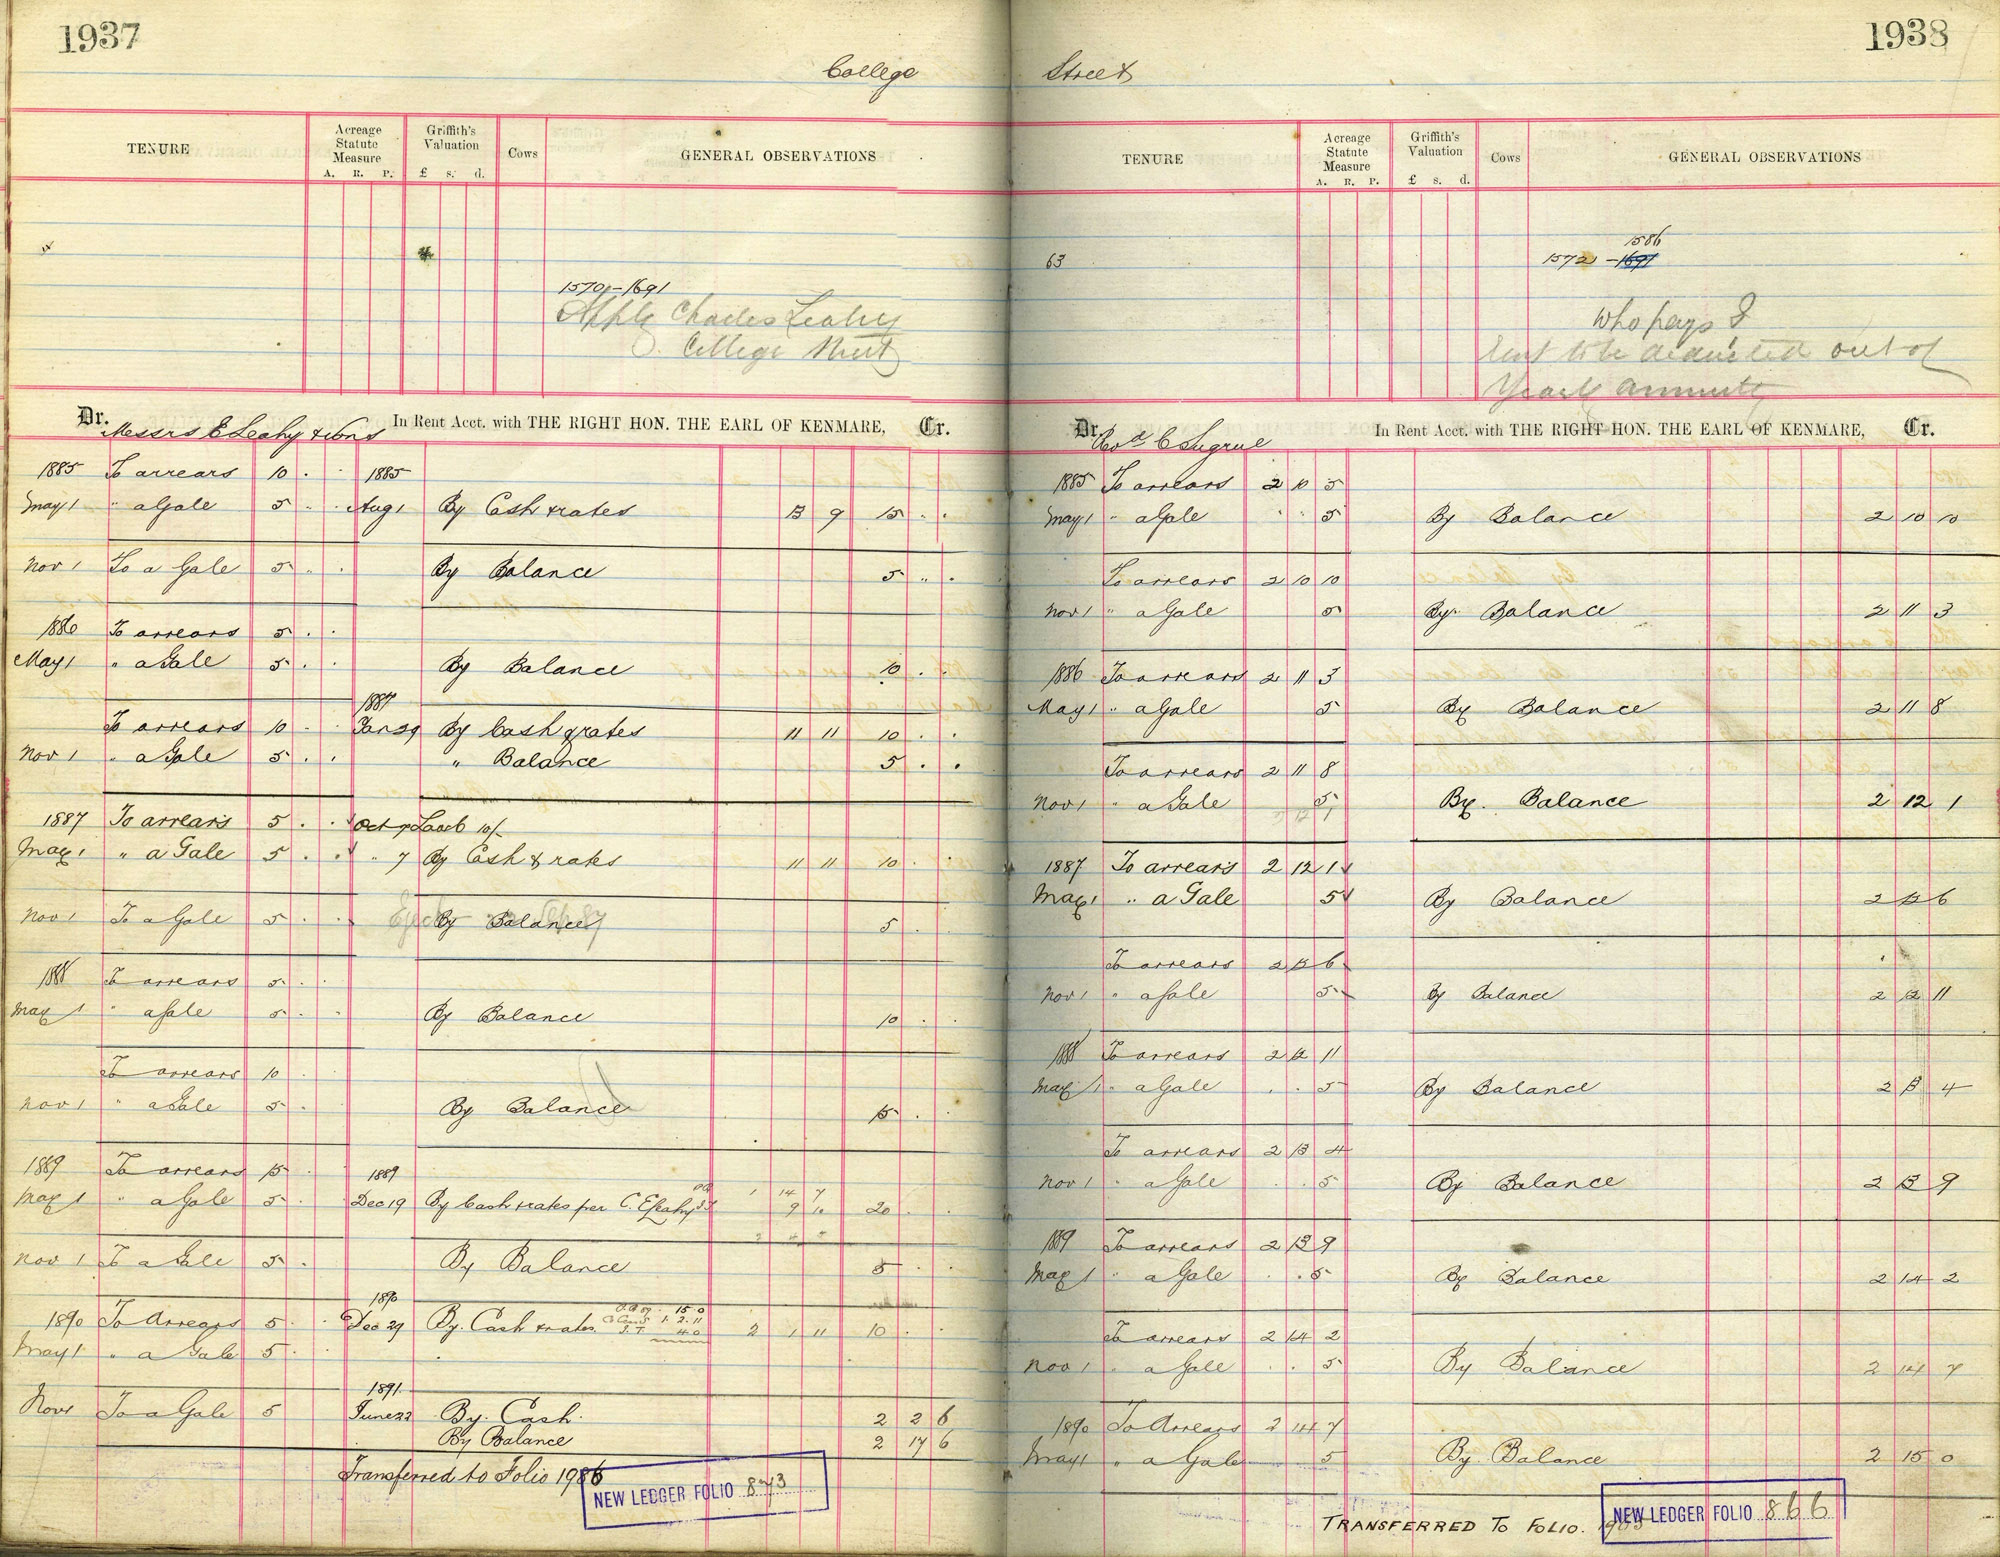 1937
College
TENURE
Acreage Statute Measure
A. R. P.
Griffith's Valuation
£ s. d.
Cows
GENERAL OBSERVATIONS
1570-1691
Charles Leahy
College Street
Dr. Messrs E Leahy & Sons In Rent Acct. with THE RIGHT HON. THE EARL OF KENMARE, Cr.
1885 To arrears 10 . . 1885
May 1 " a Gale 5 . . Aug 1 By Cash & rates 13 9 15 . .
Nov 1 To a Gale 5 " . By Balance 5 " .
1886 To arrears 5 . .
May 1 " a Gale 5 . . By Balance 10 . .
1887
To arrears 10 . . Jan 29 By Cash & rates 11 11 10 . .
Nov 1 " a Gale 5 . . " Balance 5 . .
1887 To arrears 5 . . Oct 7 10/-
May 1 " a Gale 5 . . " 7 By Cash & rates 11 11 10 . .
Nov 1 To a Gale 5 . . By Balance 5 .
1888 To arrears 5 . .
May 1 " a Gale 5 . . By Balance 10 . .
To arrears 10 .
Nov 1 " a Gale 5 . By Balance 15 . .
1889 To arrears 15 . 1889
May 1 " a Gale 5 . Dec 19 By Cash & rates per C. E Leahy 1 14 7 20 . .
9 10
Nov 1 To a Gale 5 . By Balance 5 . .
1890
1890 To Arrears 5 . Dec 29 By Cash & rates 15 0 2 1 11 10 . .
1. 2. 11
4 0
May 1 " a Gale 5 .
1891
Nov 1 To a Gale 5 June 22 By Cash 2 2 6
By Balance 2 17 6
Transferred to Folio 1986
NEW LEDGER FOLIO 873
1938
Street
TENURE
Acreage Statute Measure
A. R. P.
Griffith's Valuation
£ s. d.
Cows
GENERAL OBSERVATIONS
63
1586
1572 - 1691
Who pays?
Rent to be deducted out of
Yearly annuity
Dr. Revd C Sugrue In Rent Acct. with THE RIGHT HON. THE EARL OF KENMARE, Cr.
1885 To arrears 2 10 5
May 1 " a Gale . . 5 By Balance 2 10 10
To arrears 2 10 10
Nov 1 " a Gale 5 By Balance 2 11 3
1886 To arrears 2 11 3
May 1 " a Gale 5 By Balance 2 11 8
To arrears 2 11 8
Nov 1 " a Gale 5 By Balance 2 12 1
1887 To arrears 2 12 1
May 1 " a Gale 5 By Balance 2 12 6
To arrears 2 12 6
Nov 1 " a Gale 5 By Balance 2 12 11
1888 To arrears 2 12 11
May 1 " a Gale . . 5 By Balance 2 13 4
To arrears 2 13 4
Nov 1 " a Gale . . 5 By Balance 2 13 9
1889 To arrears 2 13 9
May 1 " a Gale . . 5 By Balance 2 14 2
To arrears 2 14 2
Nov 1 " a Gale . . 5 By Balance 2 14 7
1890 To Arrears 2 14 7
May 1 " a Gale 5 By Balance 2 15 0
TRANSFERRED TO FOLIO.
NEW LEDGER FOLIO 866